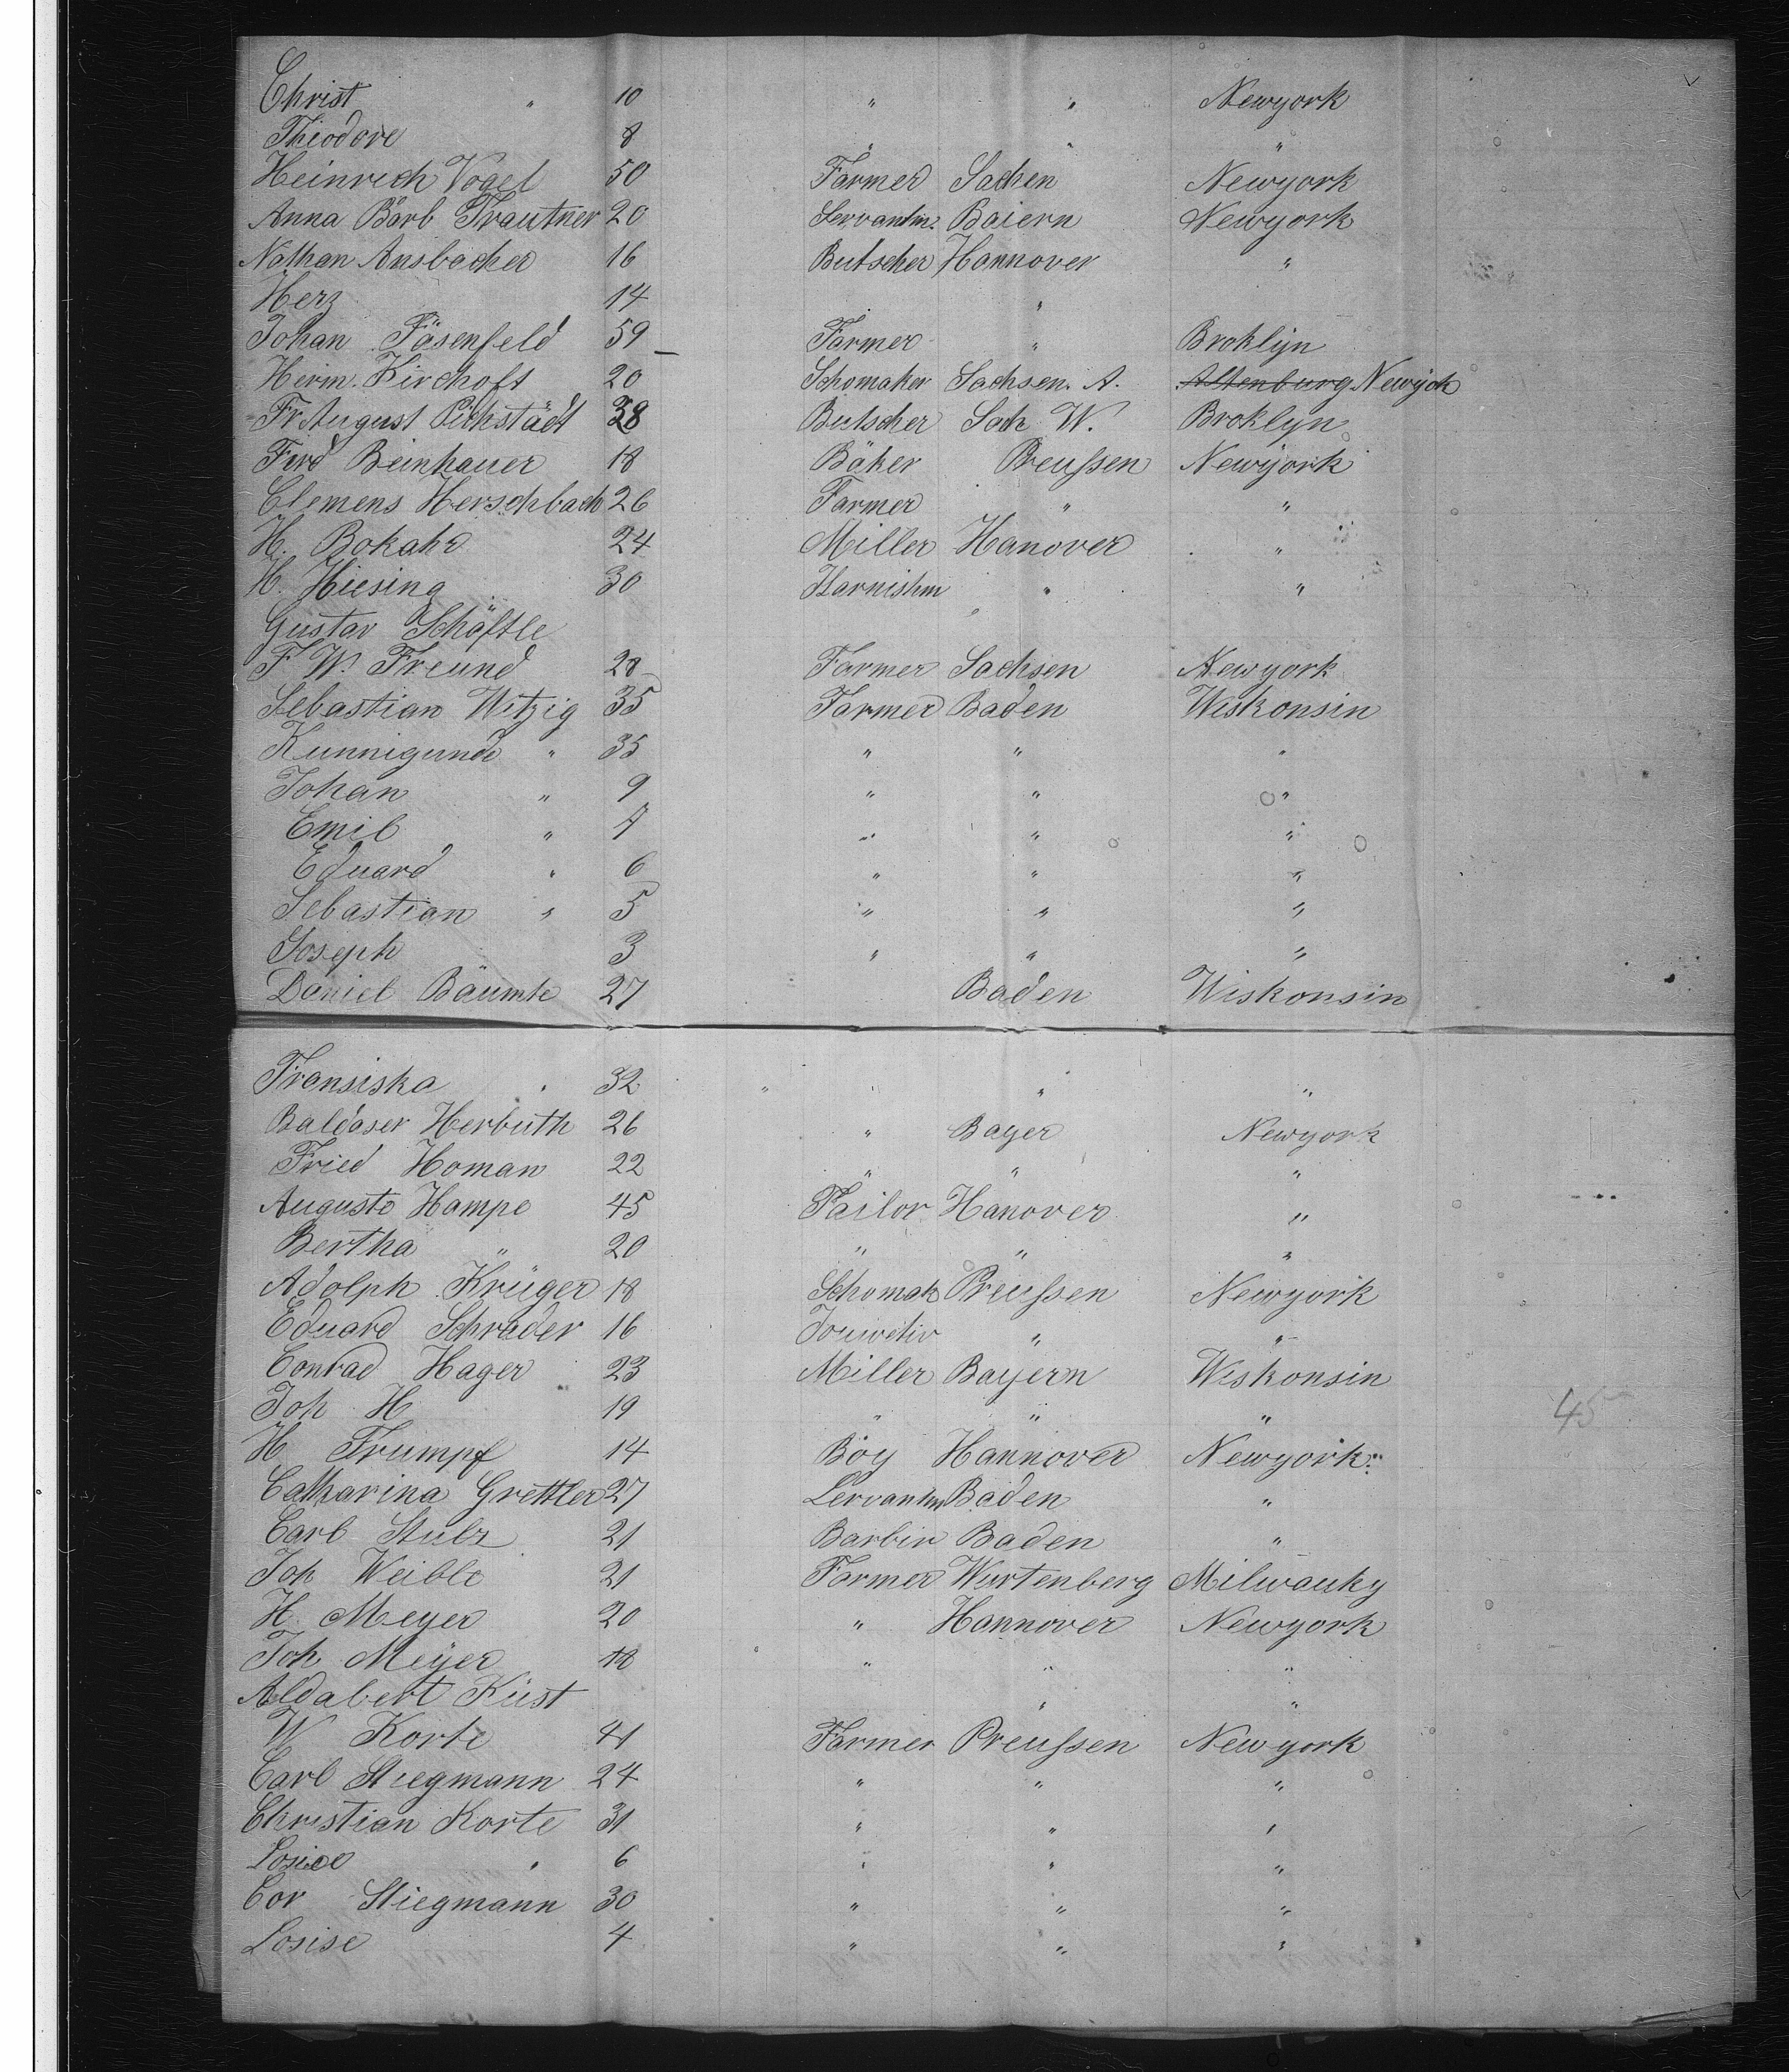 Christ " 10 " " Newyork
Theodore 8 " " "
Heinrich Vogel 50 Farmer Sachen Newyork
Anna Barb Trautner 20 Servantin. Baiern Newyork
Nathan Ansbacher 16 Butscher Hannover "
Herz 14 "
Johan Fäsenfeld 59 Farmer " Broklijn
Herm. Kirchoft 20 Schomaker Sachsen. A. Altenburg Newyok
Fr August Pichstädt 38 Butscher Sach W. Broklyn
Ferd Beinhauer 18 Bäker Preussen Newyork
Clemens Herschbach 26 Farmer " "
H. Bokahr 24 Miller Hanover "
H. Hiesing 30 Harnishm " "
Gustav Schäftle
F W. Freund 28 Farmer Sachsen Newyork
Sebastian Witzig 35 Farmer Baden Wiskonsin
Kunnigunde " 35 " " "
Johan " 9 " " "
Emil " 7 " " "
Eduard " 6 " " "
Sebastian " 5 " " "
Joseph 3 " " "
Daniel Bäumte 27 Baden Wiskonsin
Fransiska " 32 " " " "
Baldaser Herbuth 26 " Bayer Newyork
Fried Homan 22 " " "
Auguste Hampe 45 Tailor Hanover "
Bertha " 20 " " "
Adolph Krüger 18 Schomak Preussen Newyork
Eduard Schrader 16 " "
Conrad Hager 23 Miller Bayern Wiskonsin
Joh H 19 " " "
45
H Trumpf 14 Boy Hannover Newyork
Catharina Grettler 27 Servantin Baden "
Carl Stulz 21 Barbir Baden "
Joh Weible 21 Farmer Wurtenberg Milwauky
H. Meyer 20 " Hannover Newyork
Joh Meyer 18 " " "
Aldabert Küst " "
W Korte 41 Farmer Preussen Newyork
Carl Stiegmann 24 " " "
Christian Korte 31 " " "
Losise " 6 " " "
Cor Stiegmann 30 " " "
Losise 4 " " "